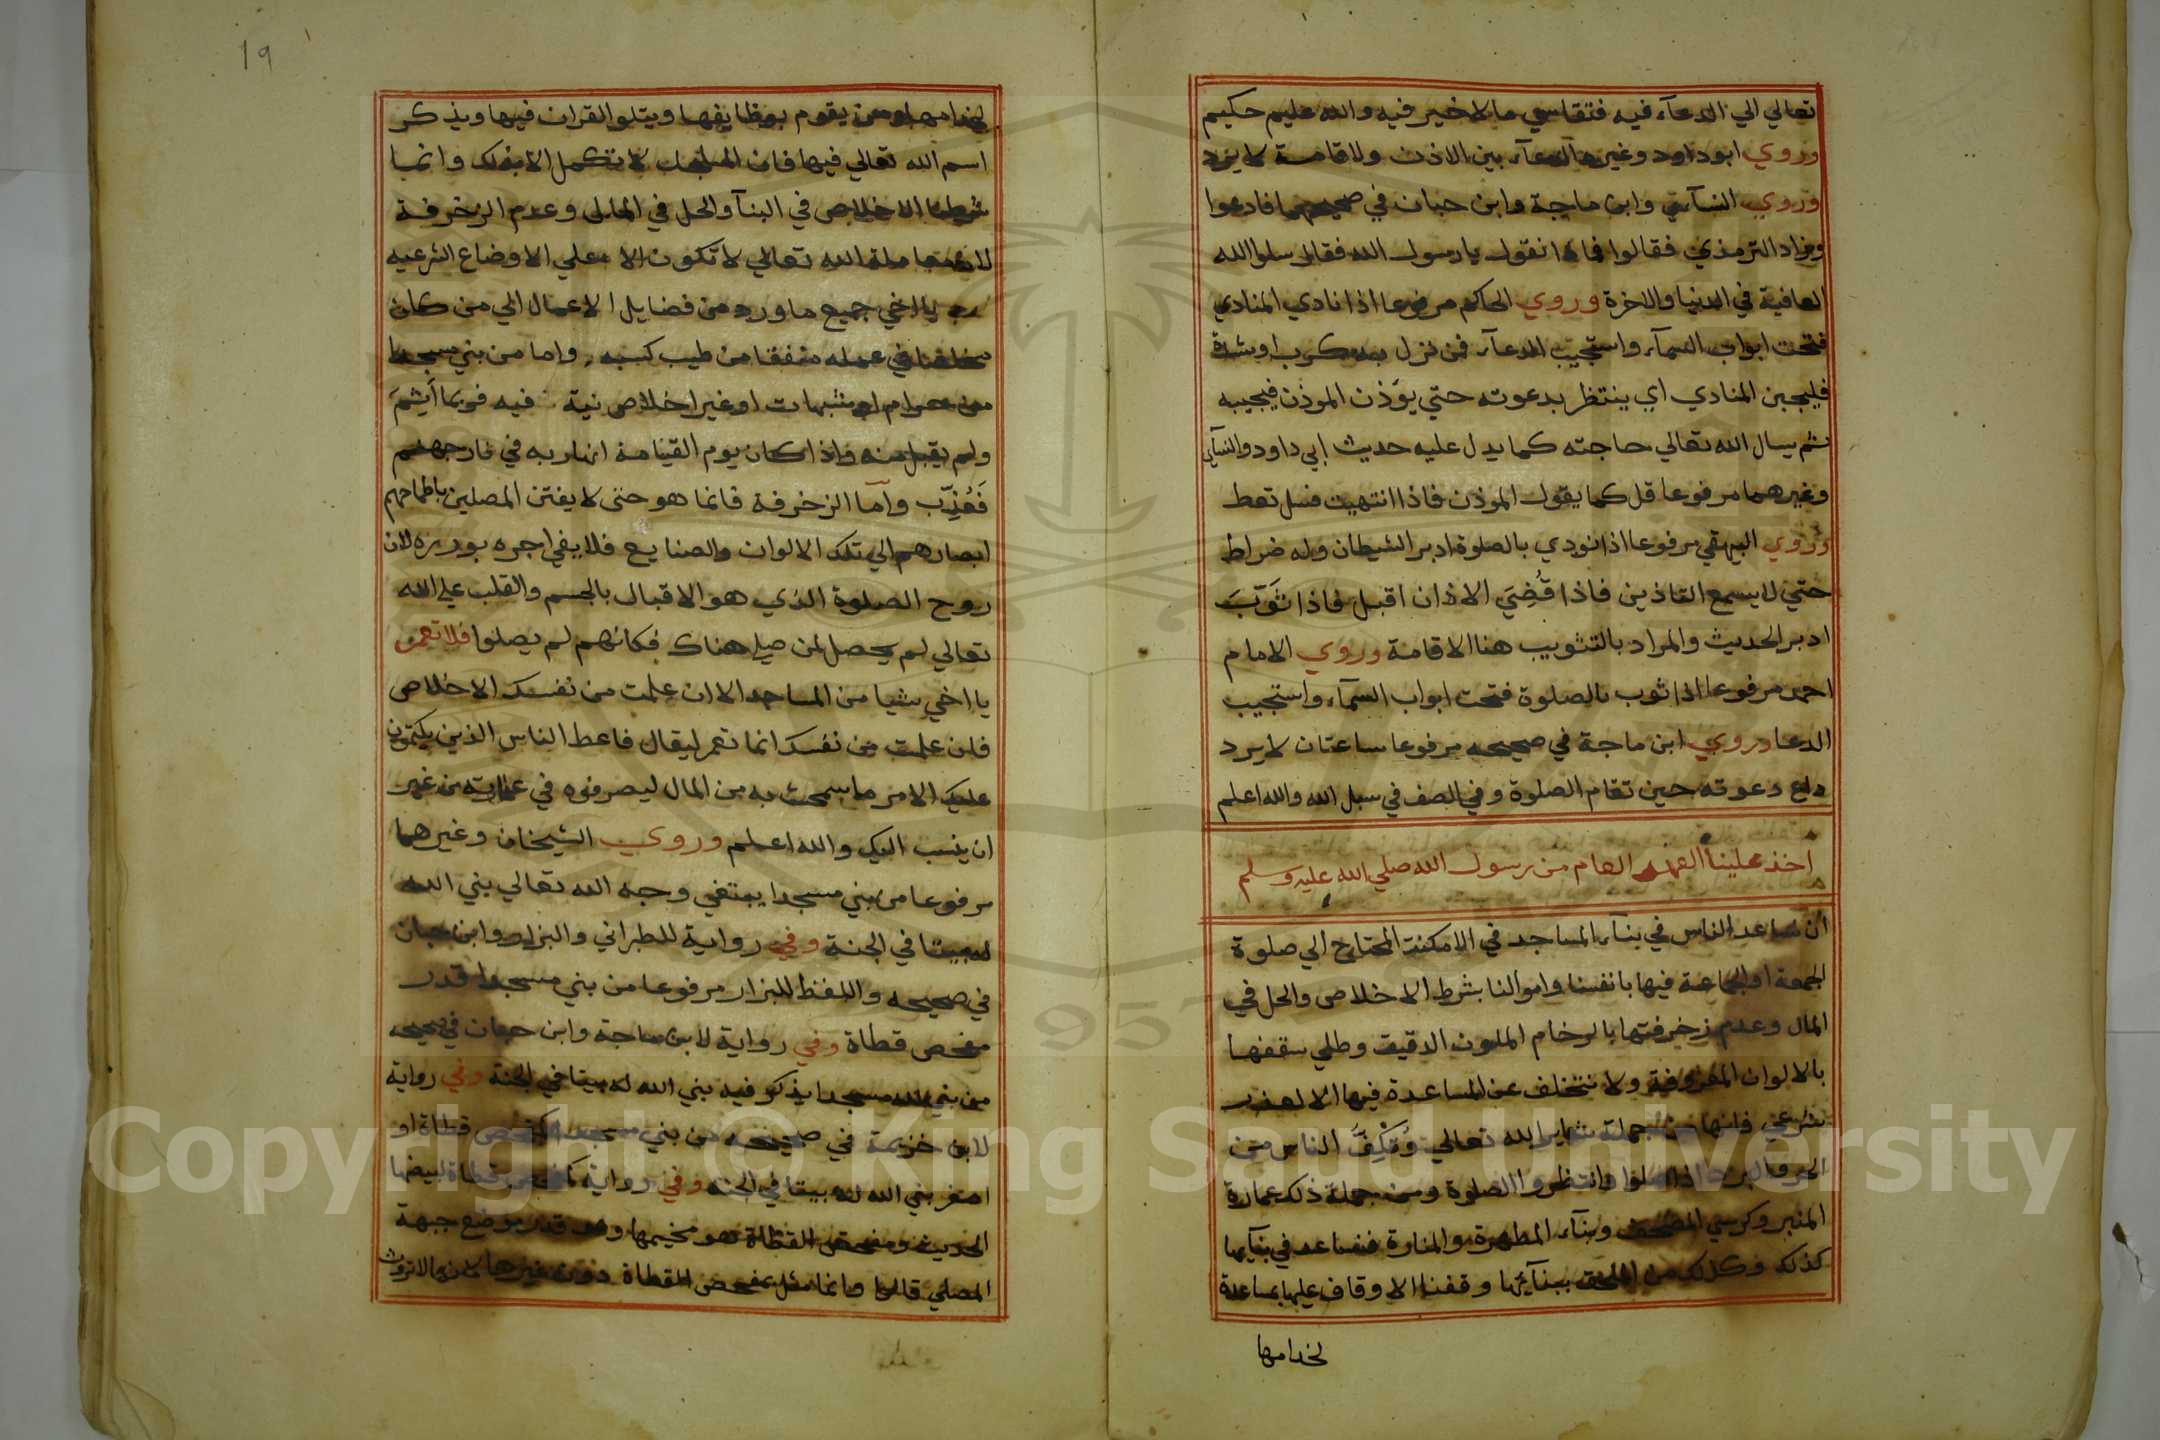 تعالي الي الدعآء فيه فتقاسي مالا خير فيه والله عليم حكيم
وروي ابوداود وغيره الدعآء بين الاذن ولاقامة لا يرد
وروي النسآئي وابن ماجة وابن حبان في صحيحهما فادعوا
وزاد الترمذي فقالوا فماذا نقول يارسول الله فقال سلوا الله
العافية في الدنيا والاخرة وروي الحاكم مرفوعا اذا نادي المنادي
فتحت ابواب السمآء واستجيب الدعآء فمن نزل به كرب اوشدة
فليجبن المنادي اي ينتظر بدعوته حتي يؤذن الموذن فيجيبه
ثم يسال الله تعالي حاجته كما يدل عليه حديث ابي داود والنسآئي
وغيرهما مرفوعا قل كما يقول الموذن فاذا انتهيت فسل تعط
وروي البيهقي مرفوعا اذا نودي بالصلوة ادبر الشيطان وله ضراط
حتي لا يسمع التاذين فاذا قُضِيَ الاذان اقبل فاذا ثَوَّبَ
ادبر الحديث والمراد بالتثويب هنا الاقامة وروي الامام
احمد مرفوعا اذا ثوب بالصلوة فتحت ابواب السمآء واستجيب
الدعا وروي ابن ماجة في صحيحه مرفوعا ساعتان لا يرد
داع دعوته حين تقام الصلوة وفي الصف في سبل الله والله اعلم
اخذ علينا العهد العام من رسول الله صلي الله عليه وسلم
ان نساعد الناس في بنآء المساجد في الامكنة المحتاج الي صلوة
الجمعة او الجماعة فيها بانفسنا واموالنا بشرط الاخلاص والحل في
المال وعدم زخرفتها بالرخام الملون الدقيق وطلي سقفها
بالالوان المعروفة ولا نتخلف عن المساعدة فيها الا لعذر
شرعي فانها من جملة شعاير الله تعالي وَتَكُفَّ الناس من
الحر والبرد اذا صلوا وانتظروا الصلوة ومن جملة ذلك عمارة
المنبر وكرسي المصحف وبنآء المطهرة والمنارة فنساعد في بنآيها
كذلك وكذلك من الملحق ببنآئها وقفنا الاوقاف عليها بمساعدة
لخدامها
19
لخدامها ومن يقوم بوظايفها ويتلو القران فيها ويذكر
اسم الله تعالي فيها فان المساجد لا تكمل الا بذلك وانما
شرطنا الاخلاص في البنآ والحل في المال وعدم الزخرفة
لان معاملة الله تعالي لا تكون الا علي الاوضاع الشرعيه
يا اخي جميع ما ورد من فضايل الاعمال الي من كان
مخلصا في عمله منفقا من طيب كسبه، واما من بني مسجدا
من حرام او شبهات او غير اخلاص نية فيه فربما أثِمَ
ولم يقبل منه واذا كان يوم القيامة انهار به في نار جهنم
فَعُذِّب وأما الزخرفة فانما هو حتى لا يفتن المصلين باطماحهم
ابصارهم الي تلك الالوان والصنايع فلا يفي اجره بوزره لان
روح الصلوة الذي هو الاقبال بالجسم والقلب علي الله
تعالي لم يحصل لمن صلي هناك فكانهم لم يصلوا فلا تعمر
يا اخي شيا من المساجد الا ان علمت من نفسك الاخلاص
فان علمت من نفسك انما تعمر ليقال فاعط الناس الذين يكتمون
عليك الامر ما سمحت به من المال ليصرفوه في عمارته من غير
ان ينسب اليك والله اعلم وروي الشيخان وغيرهما
مرفوعا من بني مسجدا يبتغي وجه الله تعالي بني الله
له بيتا في الجنة وفي رواية للطبراني والبزار وابن حبان
في صحيحه واللفظ للبزار مرفوعا من بني مسجدا قدر
مفحص قطاة وفي رواية لابن ماجة وابن حبان في صحيحه
من بني لله مسجدا يذكر فيه بني الله له بيتا في الجنة وفي رواية
لابن خزيمة في صحيحه من بني مسجدا كمفحص قطاة او
اصغر بني الله له بيتا في الجنة وفي رواية كمفحص قطاة لبيضها
الحديث ومفحص القطاة هو مخيمها وهو قدر موضع جبهة
المصلي قالوا وانما مثل بمفحص القطاة دون غيرها لانها لا تروث
Copyright © King Saud University
1957